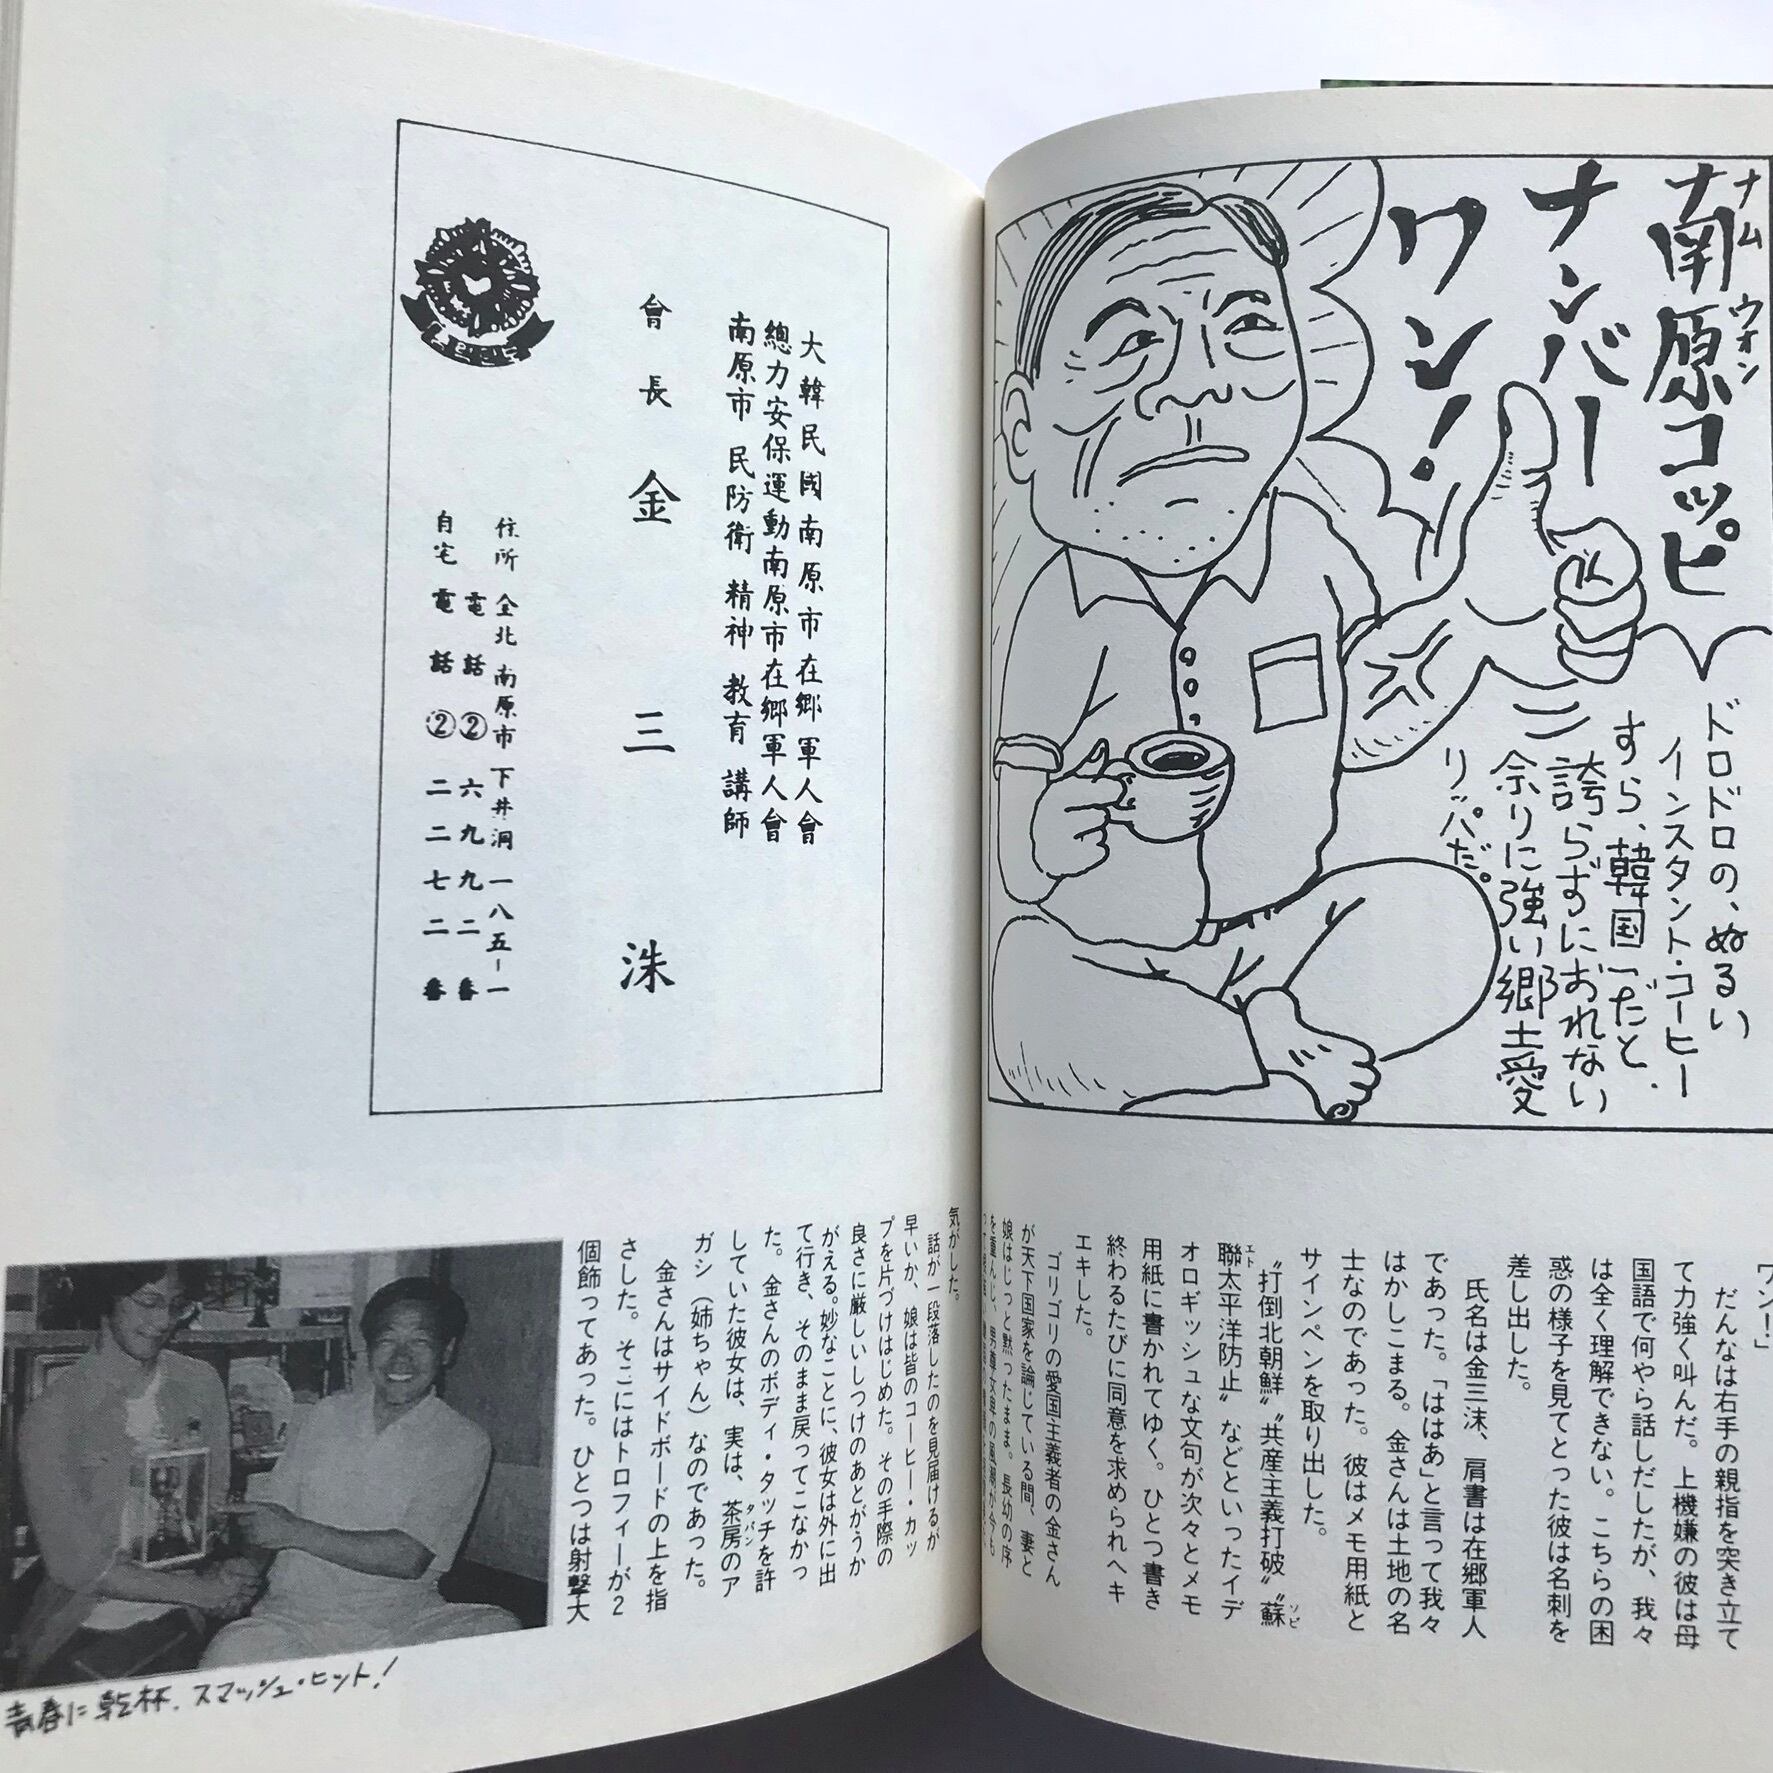 南原コッピ
ナムウォン
ナンバー
ワン！
ドロドロの、ぬるい
インスタント・コーヒー
すら、韓国一だと、
誇らずにおれない
余りに強い郷土愛
リッパだ。
ワン！」
だんなは右手の親指を突き立て
て力強く叫んだ。上機嫌の彼は母
国語で何やら話しだしたが、我々
は全く理解できない。こちらの困
惑の様子を見てとった彼は名刺を
差し出した。
氏名は金三洙、肩書は在郷軍人
であった。「ははあ」と言って我々
はかしこまる。金さんは土地の名
士なのであった。彼はメモ用紙と
サインペンを取り出した。
〝打倒北朝鮮〟〝共産主義打破〟〝蘇
ソビ
聯太平洋防止〟などといったイデ
エト
オロギッシュな文句が次々とメモ
用紙に書かれてゆく。ひとつ書き
終わるたびに同意を求められヘキ
エキした。
ゴリゴリの愛国主義者の金さん
が天下国家を論じている間、妻と
娘はじっと黙ったまま。長幼の序
を重んじ、男尊女卑の風潮が今も
大韓民國南原市在郷軍人會
總力安保運動南原市在郷軍人會
南原市民防衛精神教育講師
會長 金三洙
住所 全北南原市下井洞一八五-一
電話②六九九二番
自宅電話②二二七二番
気がした。
話が一段落したのを見届けるが
早いか、娘は皆のコーヒー・カッ
プを片づけはじめた。その手際の
良さに厳しいしつけのあとがうか
がえる。妙なことに、彼女は外に出
て行き、そのまま戻ってこなかっ
た。金さんのボディ・タッチを許
していた彼女は、実は、茶房のア
タバン
ガシ（姉ちゃん）なのであった。
金さんはサイドボードの上を指
さした。そこにはトロフィーが2
個飾ってあった。ひとつは射撃大
青春に乾杯．スマッシュ・ヒット！